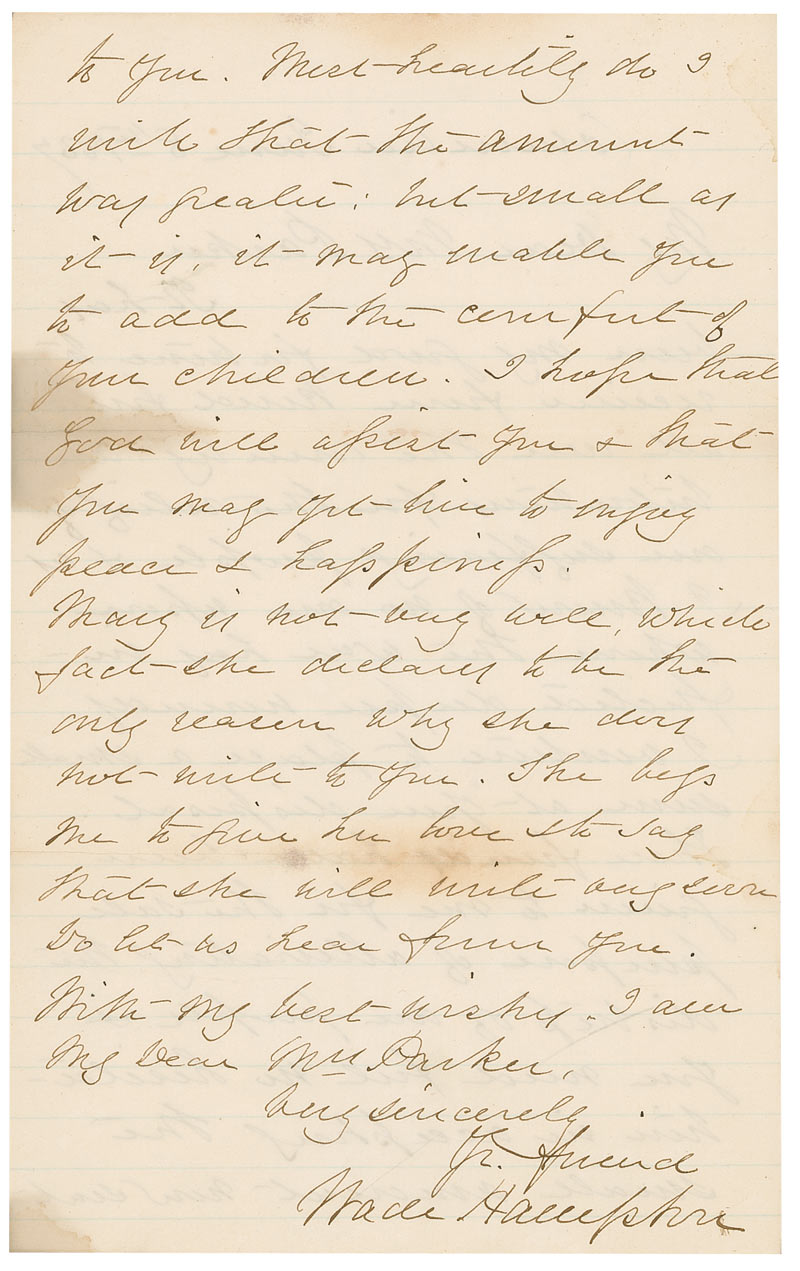 to you. Most heartily do I
wish that the amount
was greater: but small as
it is, it may enable you
to add to the comfort of
your children. I hope that
God will assist you & that
you may yet live to enjoy
peace & happiness.
Mary is not very well, which
fact she declares to be the
only reason why she does
not write to you. She begs
me to give her love & to say
that she will write very soon
Do let us hear from you.
With my best wishes. I am
My Dear Mrs Parker,
very sincerely
Yr. friend
Wade Hampton